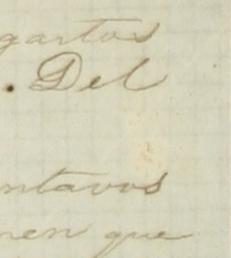 gastos
. Del
ntavos
nen que